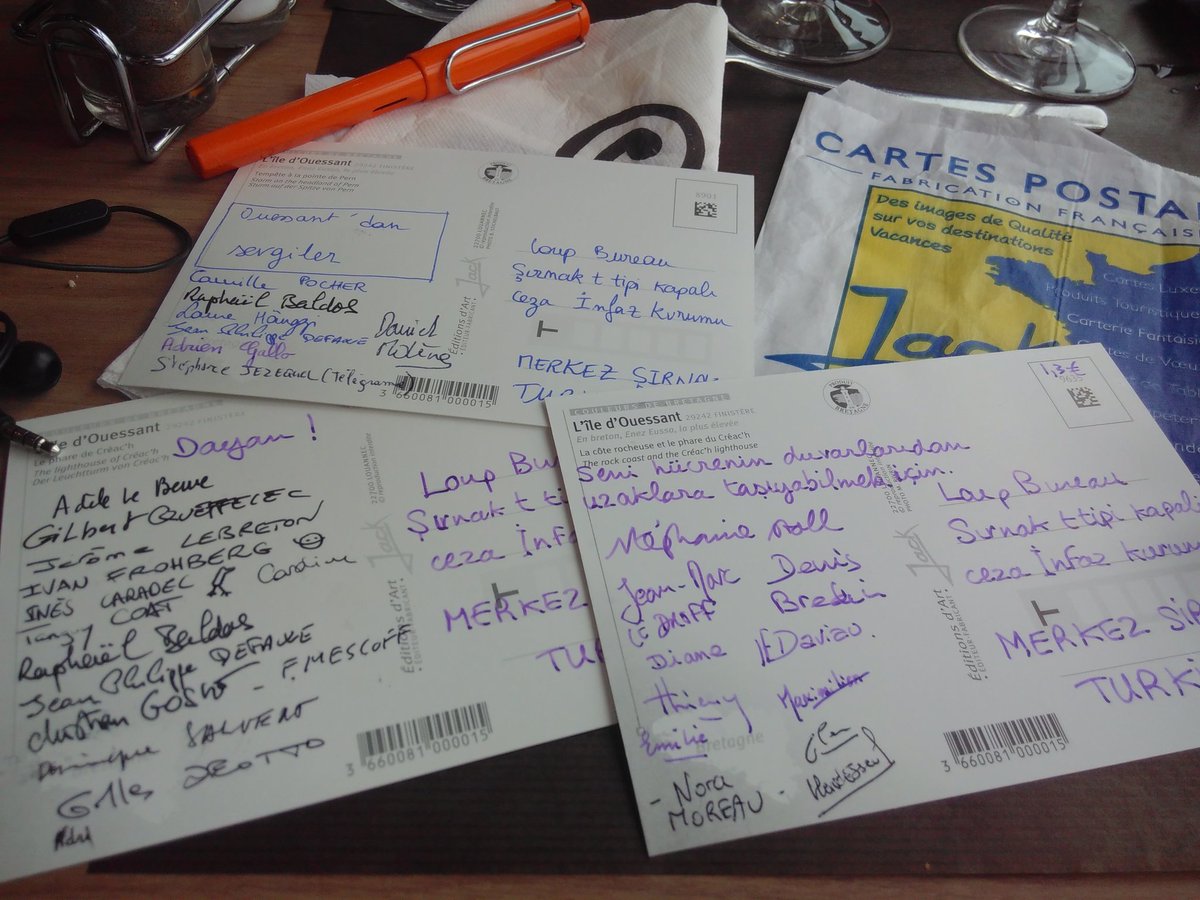 L'île d'Ouessant 29242 FINISTÈRE
Tempête à la pointe de Pern
Storm on the headland of Pern
Sturm auf der Spitze von Pern
BRETAGNE
8901
Ouessant'dan
sevgiler
Camille POCHER
Raphaël Baldos
Jean Philippe DEFAWE
Adrien Gallo
Stéphane JEZEQUEL (Télégramme)
Daniel
Molène
22700 LOUANNEC
Jack
Éditions d'Art
ÉDITEUR-FABRICANT
3 660081 000015
Loup Bureau
Şırnak t tipi kapalı
ceza İnfaz kurumu
T
MERKEZ ŞIRNA
TUR
CARTES POSTA
FABRICATION FRANÇAISE
Des images de Qualité
sur vos destinations
Vacances
Jack
Cartes Luxe
Produits Touristiques
Carterie Fantaisie
Cartes de Vœu
COULEURS DE BRETAGNE
L'île d'Ouessant 29242 FINISTÈRE
Le phare de Créac'h
The lighthouse of Créac'h
Der Leuchtturm von Créac'h
Dayan !
Adèle Le Berre
Gilbert QUEFFELEC
Jérôme LEBRETON
IVAN FROHBERG
INÈS LARADEL
Tanguy COAT
Raphaël Baldos
Jean Philippe DEFAWE
Dominique SALVERT
Gilles
22700 LOUANNEC
© reproduction interdite
Jack
Éditions d'Art
ÉDITEUR-FABRICANT
3 660081 000015
Loup Bu
Şırnak t ti
ceza İnfa
T
MERKEZ
TUR
COULEURS DE BRETAGNE
L'île d'Ouessant 29242 FINISTÈRE
En breton, Enez Eussa, la plus élevée
La côte rocheuse et le phare du Créac'h
The rock coast and the Créac'h lighthouse
PRODUIT
BRETAGNE
1,3 €
Seni hücrenin duvarlarından
uzaklara taşıyabilmek için.
Stéphanie
Jean-Marc
LE DROFF
Denis
Diane
Thierry
Maximilien
Emilie
bretagne
- Nora
MOREAU -
22700 LOUANNEC
Jack
Éditions d'Art
ÉDITEUR-FABRICANT
3 660081 000015
Loup Bureau
Şırnak t tipi kapalı
ceza İnfaz kurum
T
MERKEZ ŞIR
TURKİ